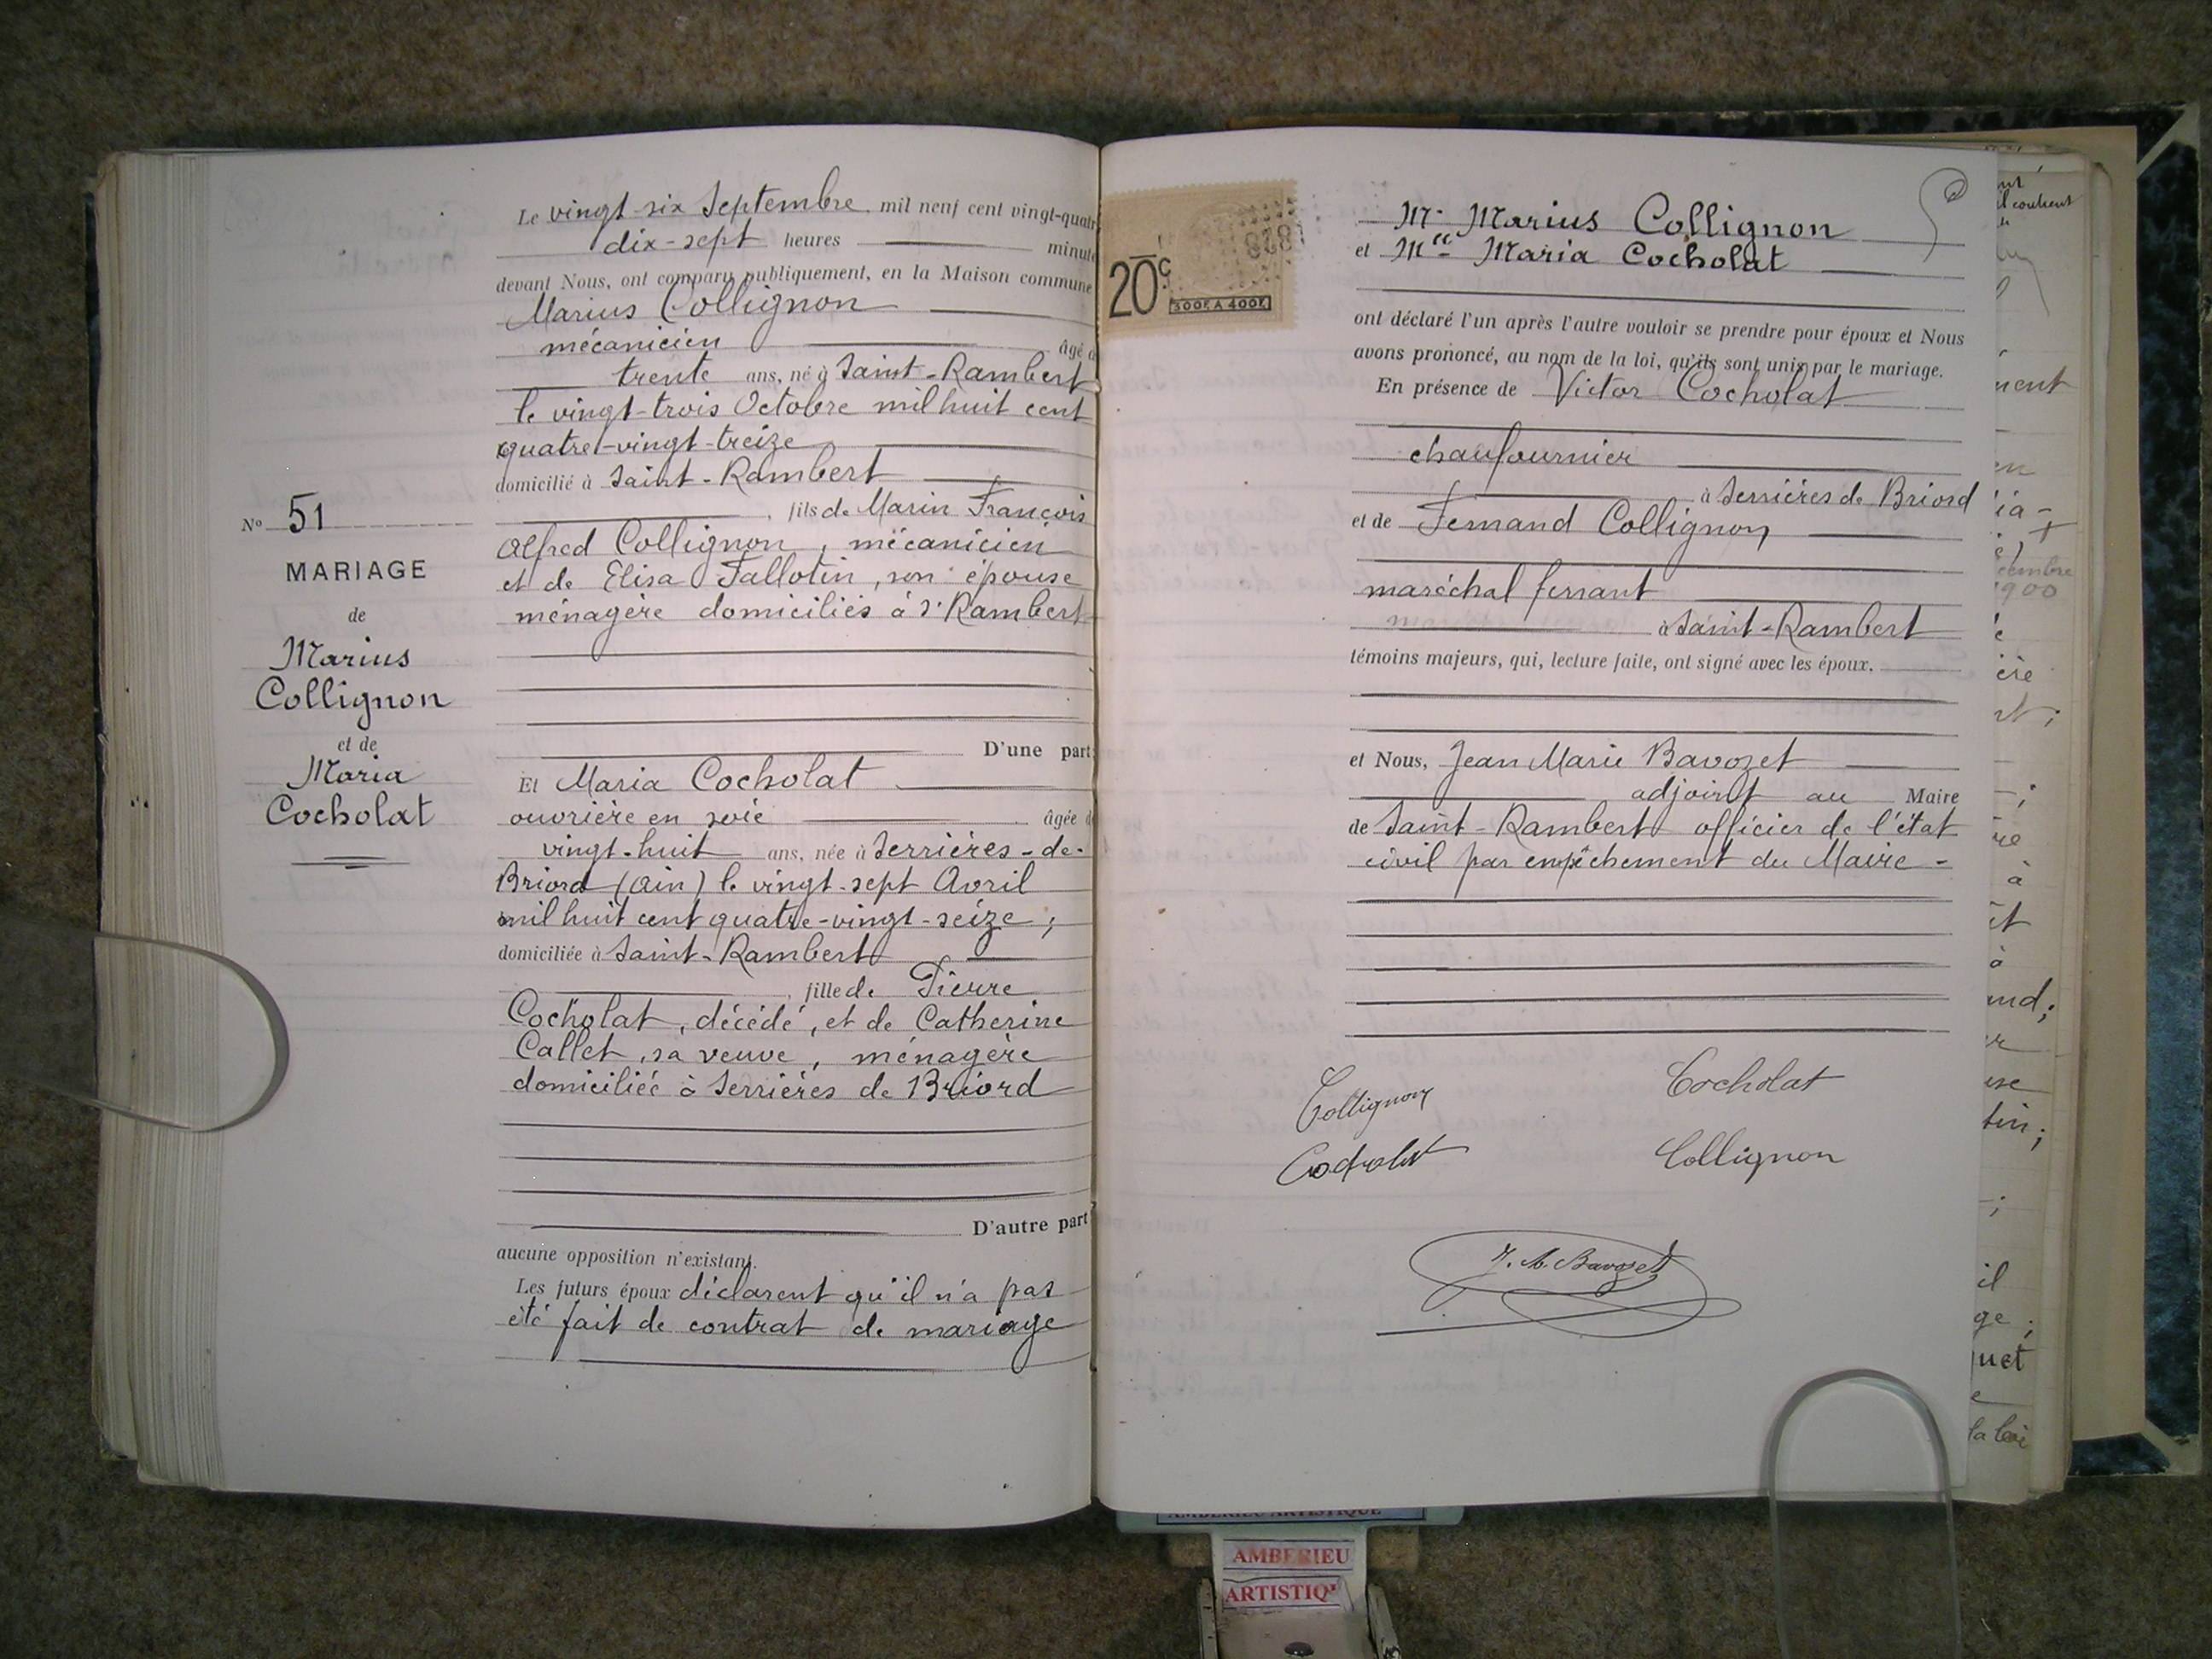 N° 51
MARIAGE
de
Marius
Collignon
et de
Maria
Cocholat
Le vingt-six Septembre mil neuf cent vingt-quatr
dix-sept heures minute
devant Nous, ont comparu publiquement, en la Maison commune
Marius Collignon
mécanicien âgé d
trente ans, né à Saint-Rambert
le vingt-trois Octobre mil huit cent
quatre-vingt-treize
domicilié à Saint-Rambert
, fils de Marin François
Alfred Collignon, mécanicien
et de Elisa Tallotin, son épouse
ménagère domiciliés à St Rambert
D'une part;
Et Maria Cocholat
ouvrière en soie âgée d
vingt-huit ans, née à Serrières-de-
Briord (Ain) le vingt-sept Avril
mil huit cent quatre-vingt-seize;
domiciliée à Saint-Rambert
, fille de Pierre
Cocholat, décédé, et de Catherine
Callet, sa veuve, ménagère
domiciliée à Serrières de Briord
D'autre part
aucune opposition n'existant.
Les futurs époux déclarent qu'il n'a pas
été fait de contrat de mariage
20c
300F. A 400F.
Mr Marius Collignon
et Melle Maria Cocholat
ont déclaré l'un après l'autre vouloir se prendre pour époux et Nous
avons prononcé, au nom de la loi, qu'ils sont unis par le mariage.
En présence de Victor Cocholat
chaufournier
à Serrières de Briord
et de Fernand Collignon
maréchal ferrant
à Saint-Rambert
témoins majeurs, qui, lecture faite, ont signé avec les époux.
et Nous, Jean Marie Bavozet
adjoint au Maire
de Saint-Rambert officier de l'état
civil par empêchement du Maire -
Collignon Cocholat
Cocholat Collignon
J. M. Bavozet
AMBERIEU ARTISTIQUE
AMBERIEU
ARTISTIQ